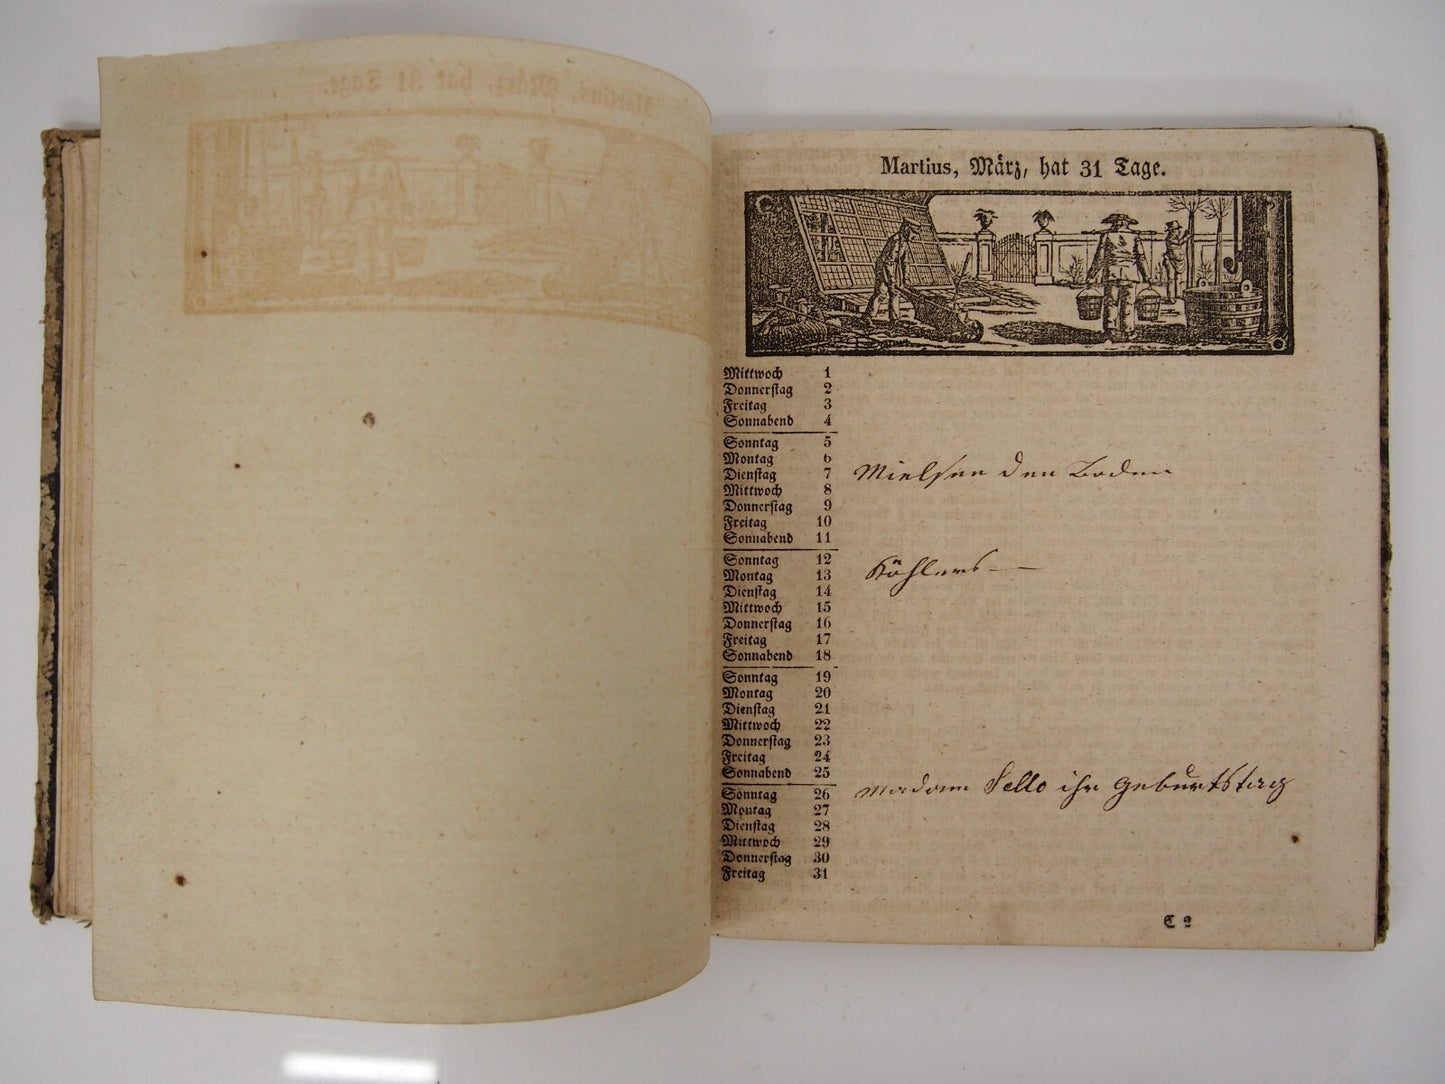 Martius, März, hat 31 Tage.
Mittwoch 1
Donnerstag 2
Freitag 3
Sonnabend 4
Sonntag 5
Montag 6
Dienstag 7 den Boden
Mittwoch 8
Donnerstag 9
Freitag 10
Sonnabend 11
Sonntag 12 Köhlers
Montag 13
Dienstag 14
Mittwoch 15
Donnerstag 16
Freitag 17
Sonnabend 18
Sonntag 19
Montag 20
Dienstag 21
Mittwoch 22
Donnerstag 23
Freitag 24
Sonnabend 25
Sonntag 26 Madam Sello ihr Geburtstag
Montag 27
Dienstag 28
Mittwoch 29
Donnerstag 30
Freitag 31
C 2